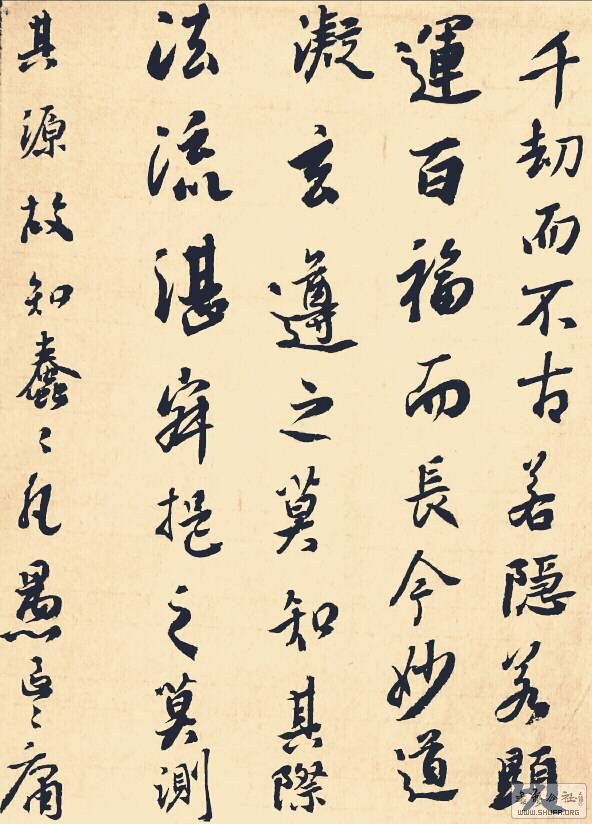 千劫而不古若隱若顯
運百福而長今妙道
凝玄遵之莫知其際
法流湛寂挹之莫測
其源故知蠢〻凡愚區〻庸
WWW.SHUFA.ORG